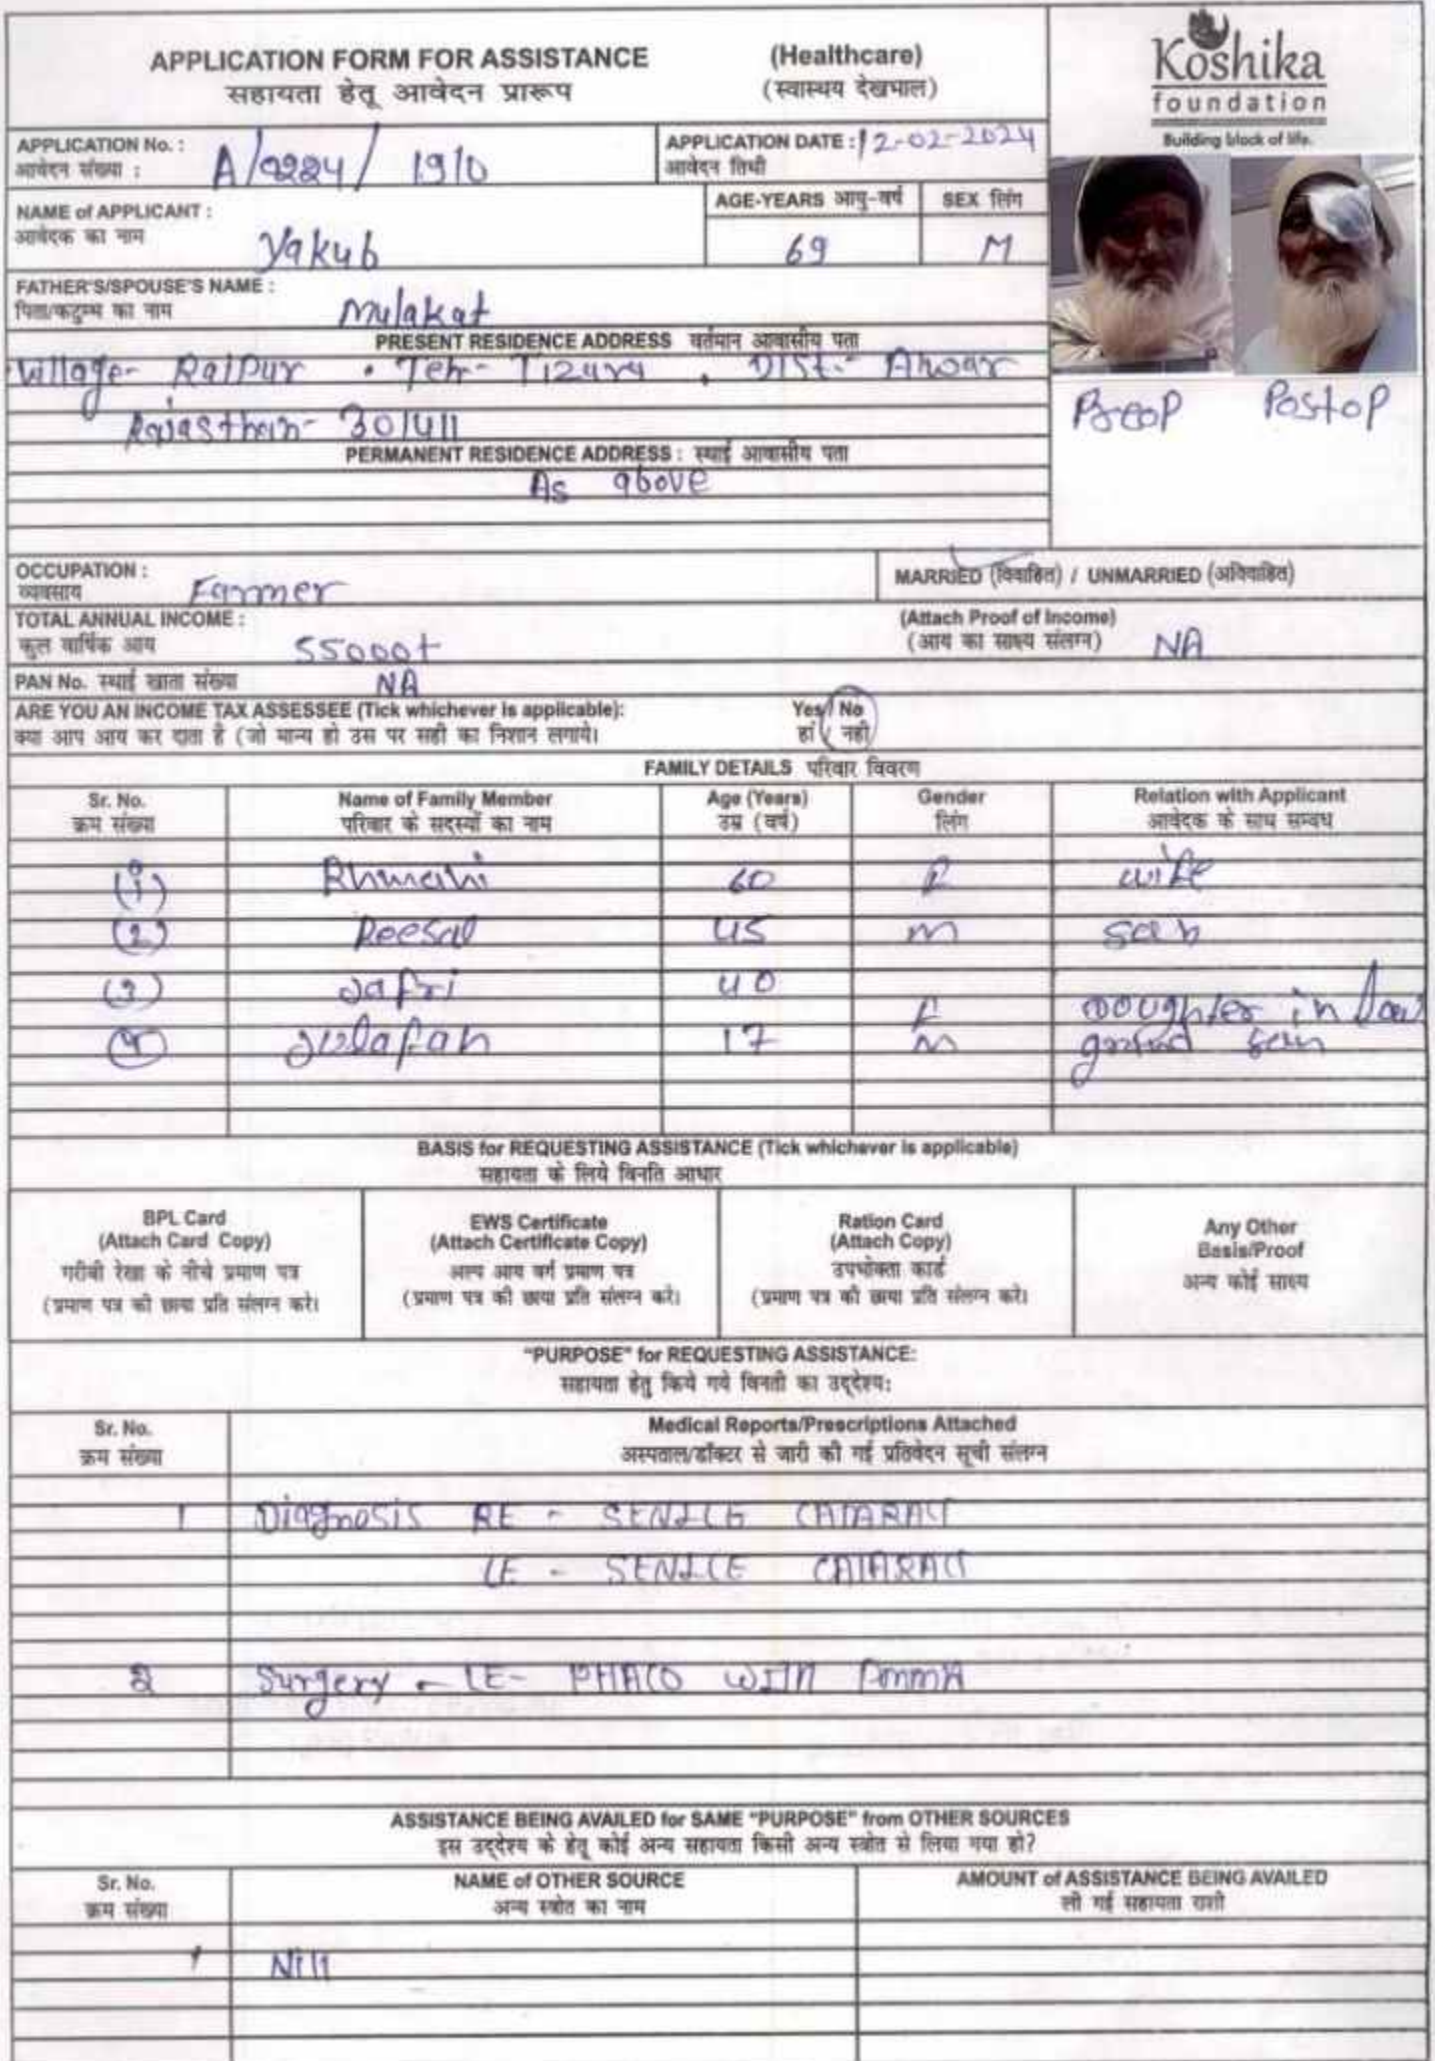 APPLICATION FORM FOR ASSISTANCE (Healthcare)
सहायता हेतू आवेदन प्रारूप (स्वास्थय देखभाल)
Koshika
foundation
Building block of life.
APPLICATION No. : A/0224/1910
आवेदन संख्या :
APPLICATION DATE : 12-02-2024
आवेदन तिथी
NAME of APPLICANT : Yakub
आवेदक का नाम
AGE-YEARS आयु-वर्ष 69
SEX लिंग M
FATHER'S/SPOUSE'S NAME : Mulakat
पिता/कटुम्ब का नाम
PRESENT RESIDENCE ADDRESS वर्तमान आवासीय पता
Village- Raipur . Teh- Tizara , Dist.-
Rajasthan- 301411
Preop Postop
PERMANENT RESIDENCE ADDRESS : स्थाई आवासीय पता
As above
OCCUPATION : Farmer
व्यवसाय
MARRIED (विवाहित) / UNMARRIED (अविवाहित)
TOTAL ANNUAL INCOME : 55000+
कुल वार्षिक आय
(Attach Proof of Income) NA
(आय का साक्ष्य संलग्न)
PAN No. स्थाई खाता संख्या NA
ARE YOU AN INCOME TAX ASSESSEE (Tick whichever is applicable): Yes / No
क्या आप आय कर दाता है (जो मान्य हो उस पर सही का निशान लगाये। हां / नही
FAMILY DETAILS परिवार विवरण
Sr. No. Name of Family Member Age (Years) Gender Relation with Applicant
क्रम संख्या परिवार के सदस्यों का नाम उम्र (वर्ष) लिंग आवेदक के साथ सम्बध
(1) 60 F wife
(2) Reesal 45 m son
(3) Jafri 40 F Doughter in law
(4) 17 m grand son
BASIS for REQUESTING ASSISTANCE (Tick whichever is applicable)
सहायता के लिये विनति आधार
BPL Card
(Attach Card Copy)
गरीबी रेखा के नीचे प्रमाण पत्र
(प्रमाण पत्र की छाया प्रति संलग्न करे।
EWS Certificate
(Attach Certificate Copy)
अल्प आय वर्ग प्रमाण पत्र
(प्रमाण पत्र की छाया प्रति संलग्न करे।
Ration Card
(Attach Copy)
उपभोक्ता कार्ड
(प्रमाण पत्र की छाया प्रति संलग्न करे।
Any Other
Basis/Proof
अन्य कोई साक्ष्य
"PURPOSE" for REQUESTING ASSISTANCE:
सहायता हेतु किये गये विनती का उद्देश्य:
Sr. No. Medical Reports/Prescriptions Attached
क्रम संख्या अस्पताल/डॉक्टर से जारी की गई प्रतिवेदन सूची संलग्न
1 Diagnosis RE - SENILE CATARACT
LE - SENILE CATARACT
2 Surgery - LE- PHACO WITH PMMA
ASSISTANCE BEING AVAILED for SAME "PURPOSE" from OTHER SOURCES
इस उद्देश्य के हेतू कोई अन्य सहायता किसी अन्य स्त्रोत से लिया गया हो?
Sr. No. NAME of OTHER SOURCE AMOUNT of ASSISTANCE BEING AVAILED
क्रम संख्या अन्य स्त्रोत का नाम ली गई सहायता राशी
1 Nill